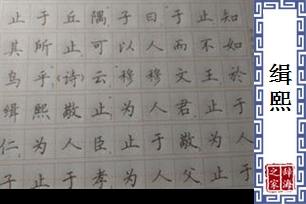 止于丘隅子曰于止知
其所止可以人而不如
鸟乎《诗》云穆穆文王於
缉熙敬止为人君止于
仁为人臣止于敬为人
子止于孝为人父止于
缉熙
辞海之家